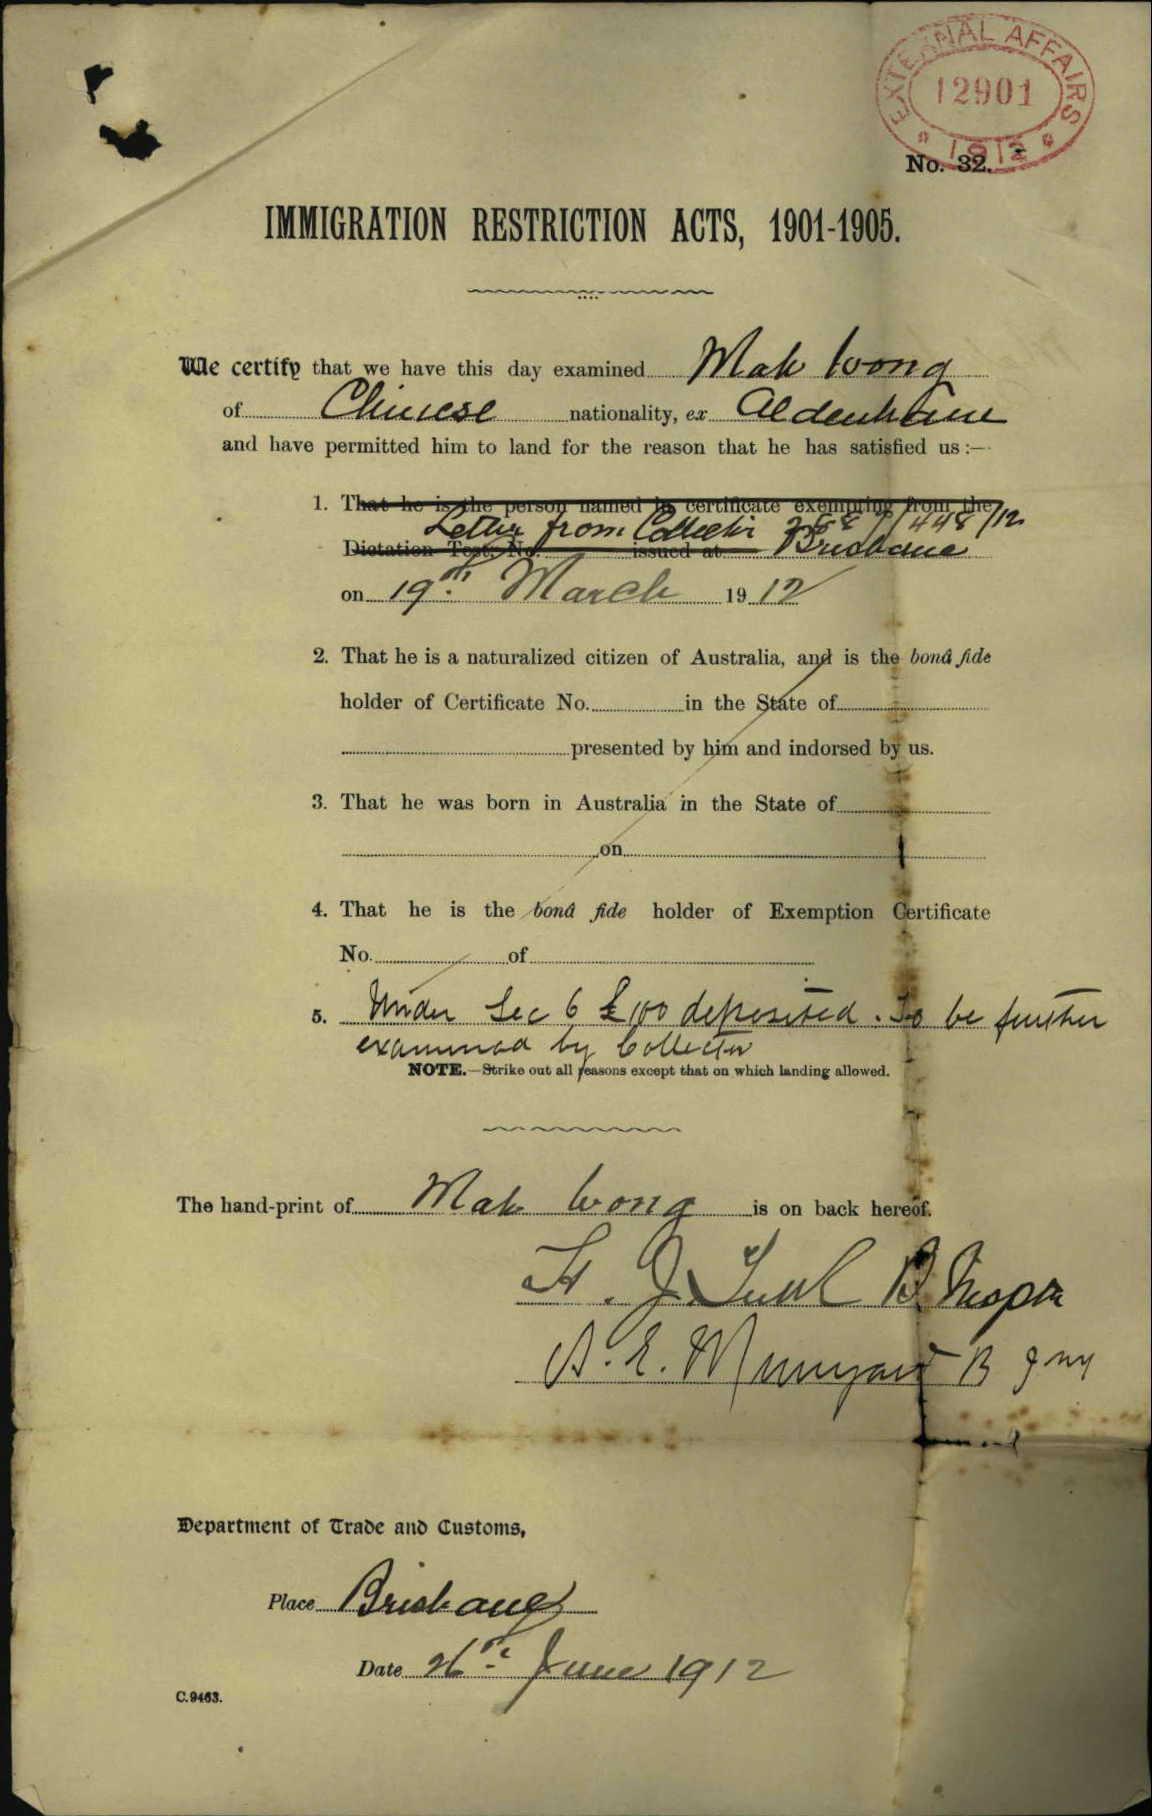 EXTERNAL AFFAIRS
12901
1912
No. 32.
IMMIGRATION RESTRICTION ACTS, 1901-1905.
We certify that we have this day examined Mak Wong
of Chinese nationality, ex Aldenham
and have permitted him to land for the reason that he has satisfied us :—
1. That he is the person named in certificate exempting from the
Letter from Collector /448/12
Dictation Test, No. issued at Brisbane
on 19th March 1912
2. That he is a naturalized citizen of Australia, and is the bonâ fide
holder of Certificate No. in the State of
presented by him and indorsed by us.
3. That he was born in Australia in the State of
on
4. That he is the bonâ fide holder of Exemption Certificate
No. of
5. Under Sec 6 £100 deposited. To be further
examined by Collector
NOTE.—Strike out all reasons except that on which landing allowed.
The hand-print of Mak Wong is on back hereof.
H. J. B.
A. E. Munyard B
Department of Trade and Customs,
Place Brisbane
Date 26th June 1912
C.9463.